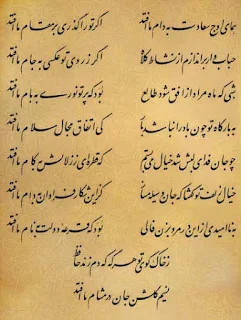 همای اوج سعادت به دام ما افتد اگر تو را گذری بر مقام ما افتد
حباب وار براندازم از نشاط کلاه اگر ز روی تو عکسی به جام ما افتد
شبی که ماه مراد از افق شود طالع بود که پرتو نوری به بام ما افتد
به بارگاه تو چون باد را نباشد بار کی اتفاق مجال سلام ما افتد
چو جان فدای لبش شد خیال می‌بستم که قطره‌ای ز زلالش به کام ما افتد
خیال زلف تو گفتا که جان وسیله مساز کز این شکار فراوان به دام ما افتد
به ناامیدی از این در مرو بزن فالی بود که قرعه دولت به نام ما افتد
ز خاک کوی تو هر گه که دم زند حافظ
نسیم گلشن جان در مشام ما افتد